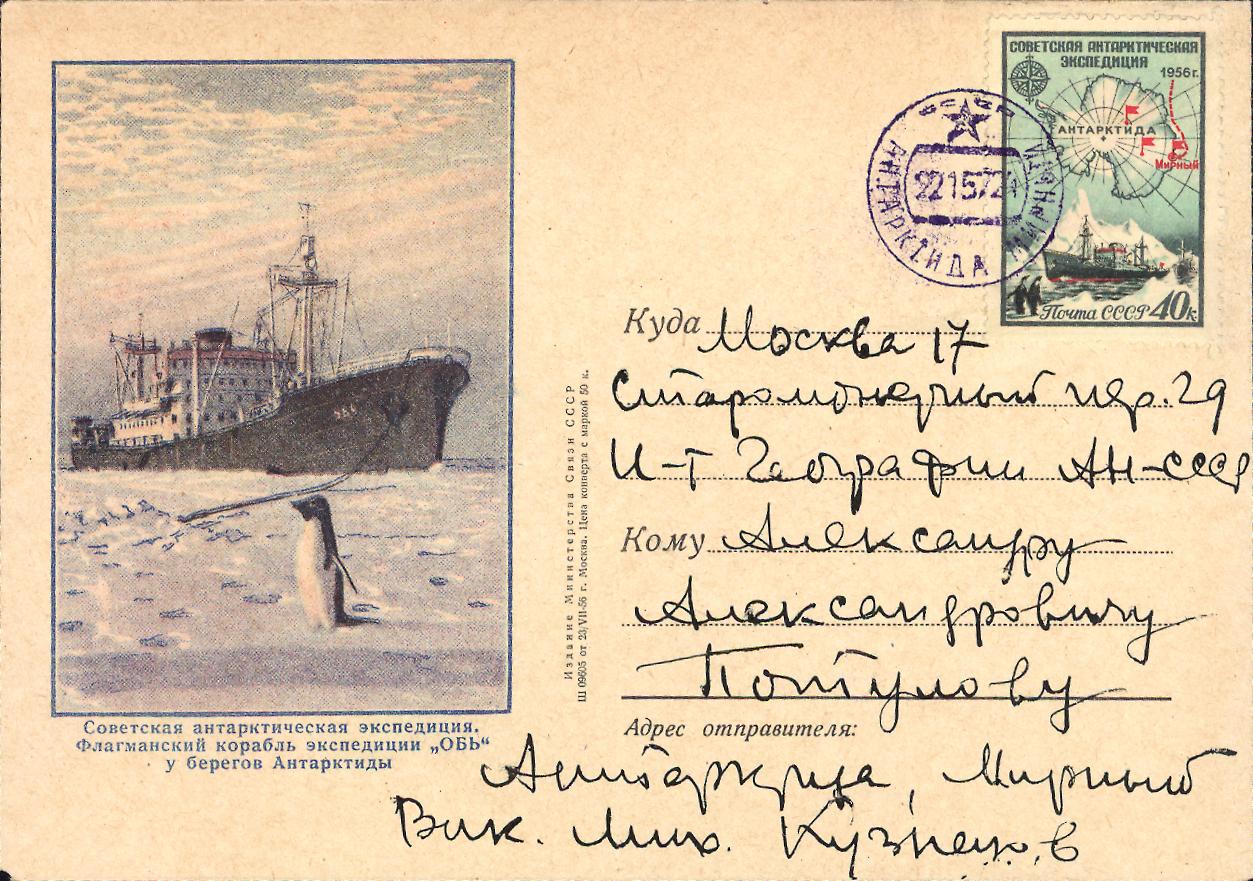 СОВЕТСКАЯ АНТАРКТИЧЕСКАЯ
ЭКСПЕДИЦИЯ
1956г.
АНТАРКТИДА
Мирный
Почта СССР 40к
АНТАРКТИДА МИРНЫЙ
Куда Москва 17
Старомонетный пер. 29
И-т Географии АН-СССР
Кому Александру
Александровичу
Потулову
Адрес отправителя:
Антарктида, Мирный
Вик. Мих. Кузнецов
Издание Министерства Связи СССР
Ш 09605 от 23/VII-56 г. Москва. Цена конверта с маркой 50 к.
Советская антарктическая экспедиция.
Флагманский корабль экспедиции „ОБЬ“
у берегов Антарктиды